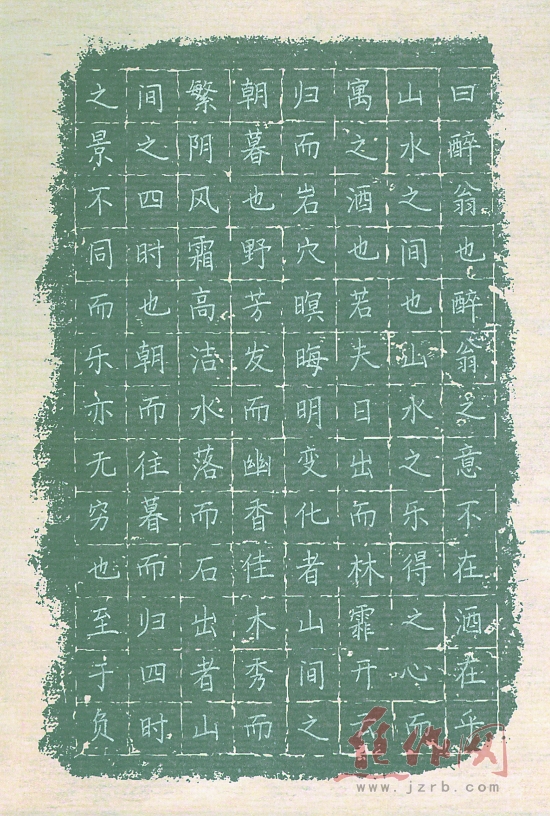 曰醉翁也醉翁之意不在酒在乎
山水之间也山水之乐得之心而
寓之酒也若夫日出而林霏开云
归而岩穴暝晦明变化者山间之
朝暮也野芳发而幽香佳木秀而
繁阴风霜高洁水落而石出者山
间之四时也朝而往暮而归四时
之景不同而乐亦无穷也至于负
焦作网
www.jzrb.com